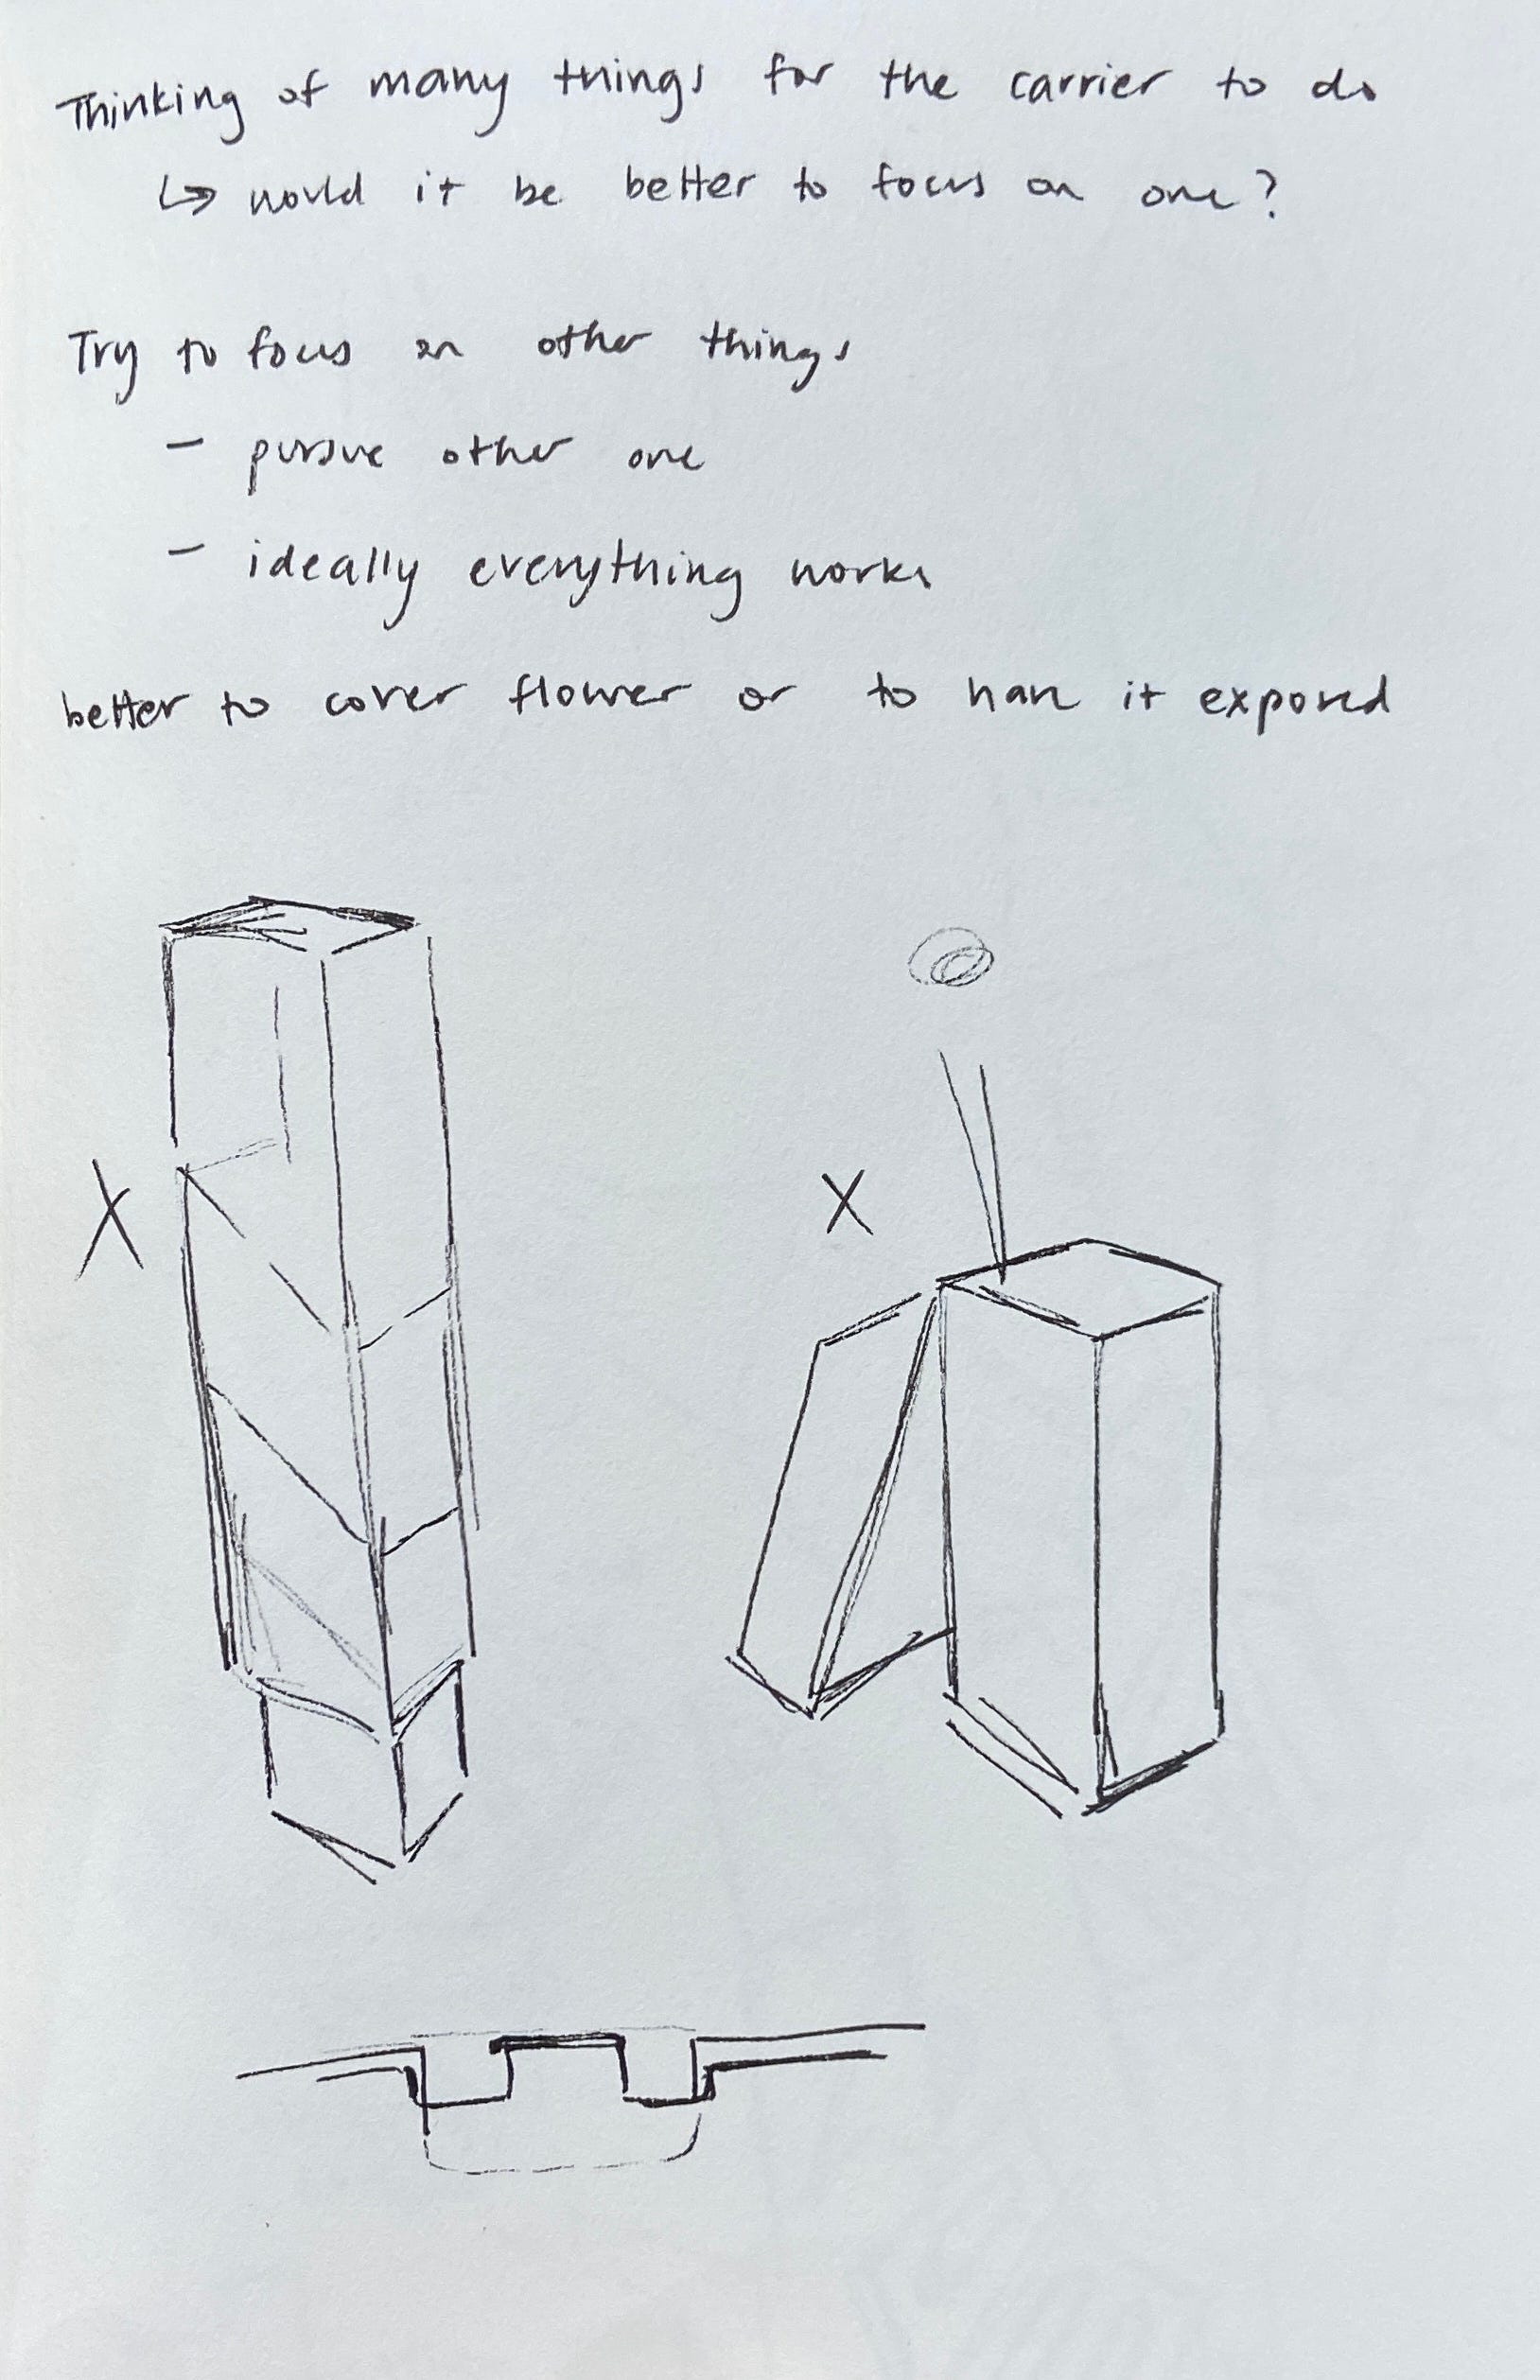 Thinking of many things for the carrier to do
↳ would it be better to focus on one?
Try to focus on other things
– pursue other one
– ideally everything works
better to cover flower or to have it exposed
X
X